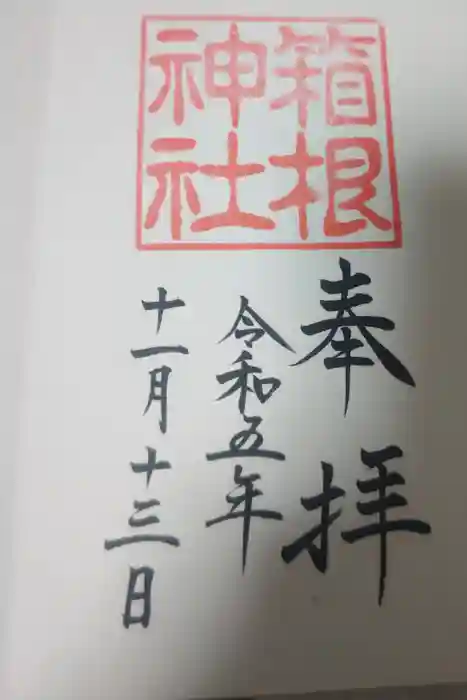 箱根
神社
奉拝
令和五年
十一月十三日